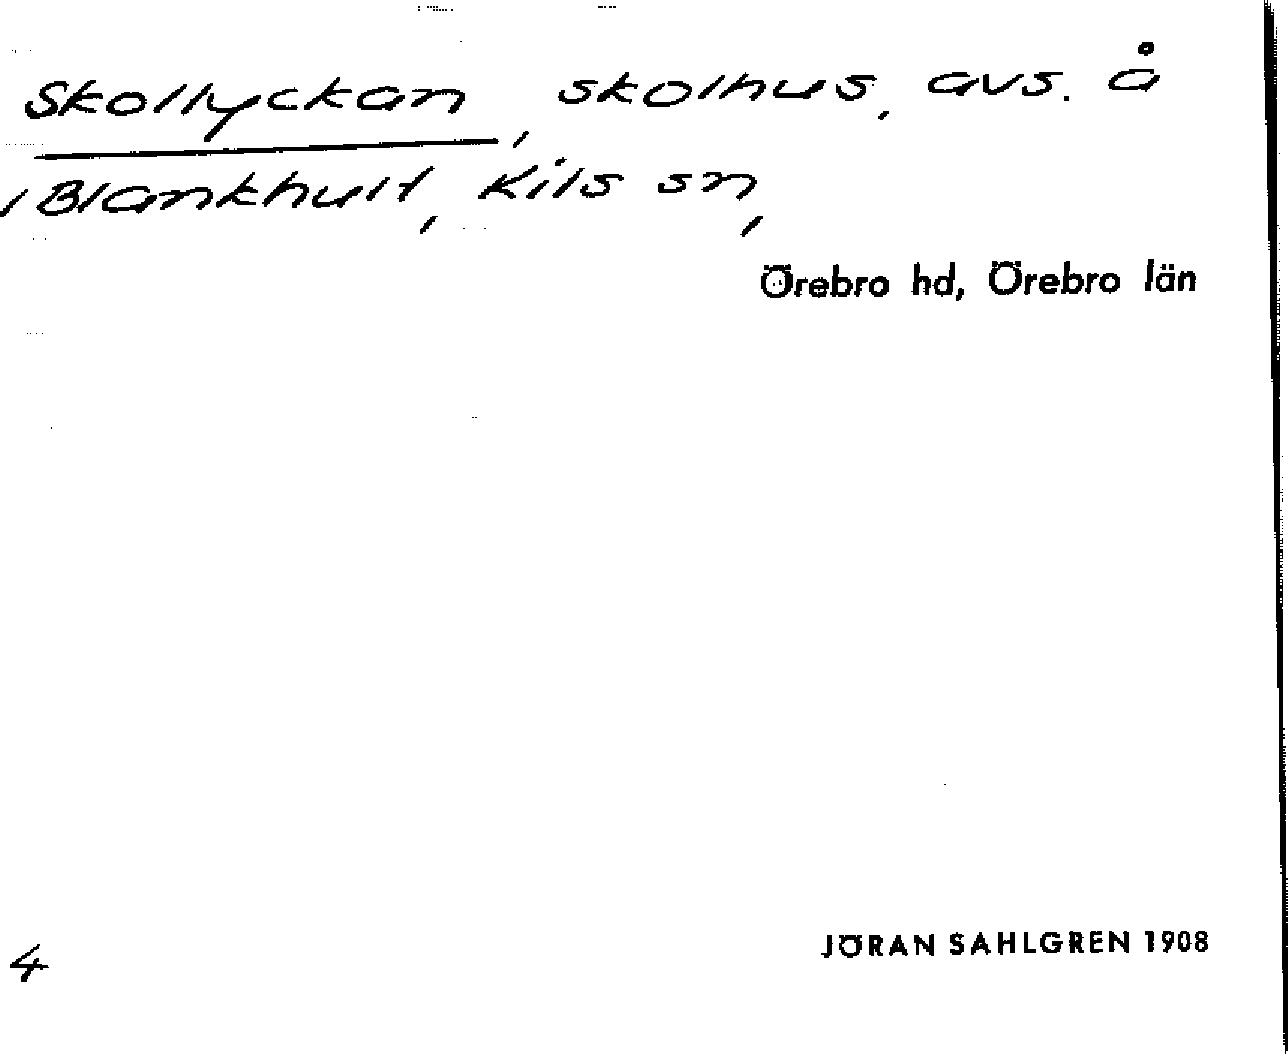 Skollyckan, skolhus, avs. å
Blankhult, Kils sn,
Örebro hd, Örebro län
4
JÖRAN SAHLGREN 1908